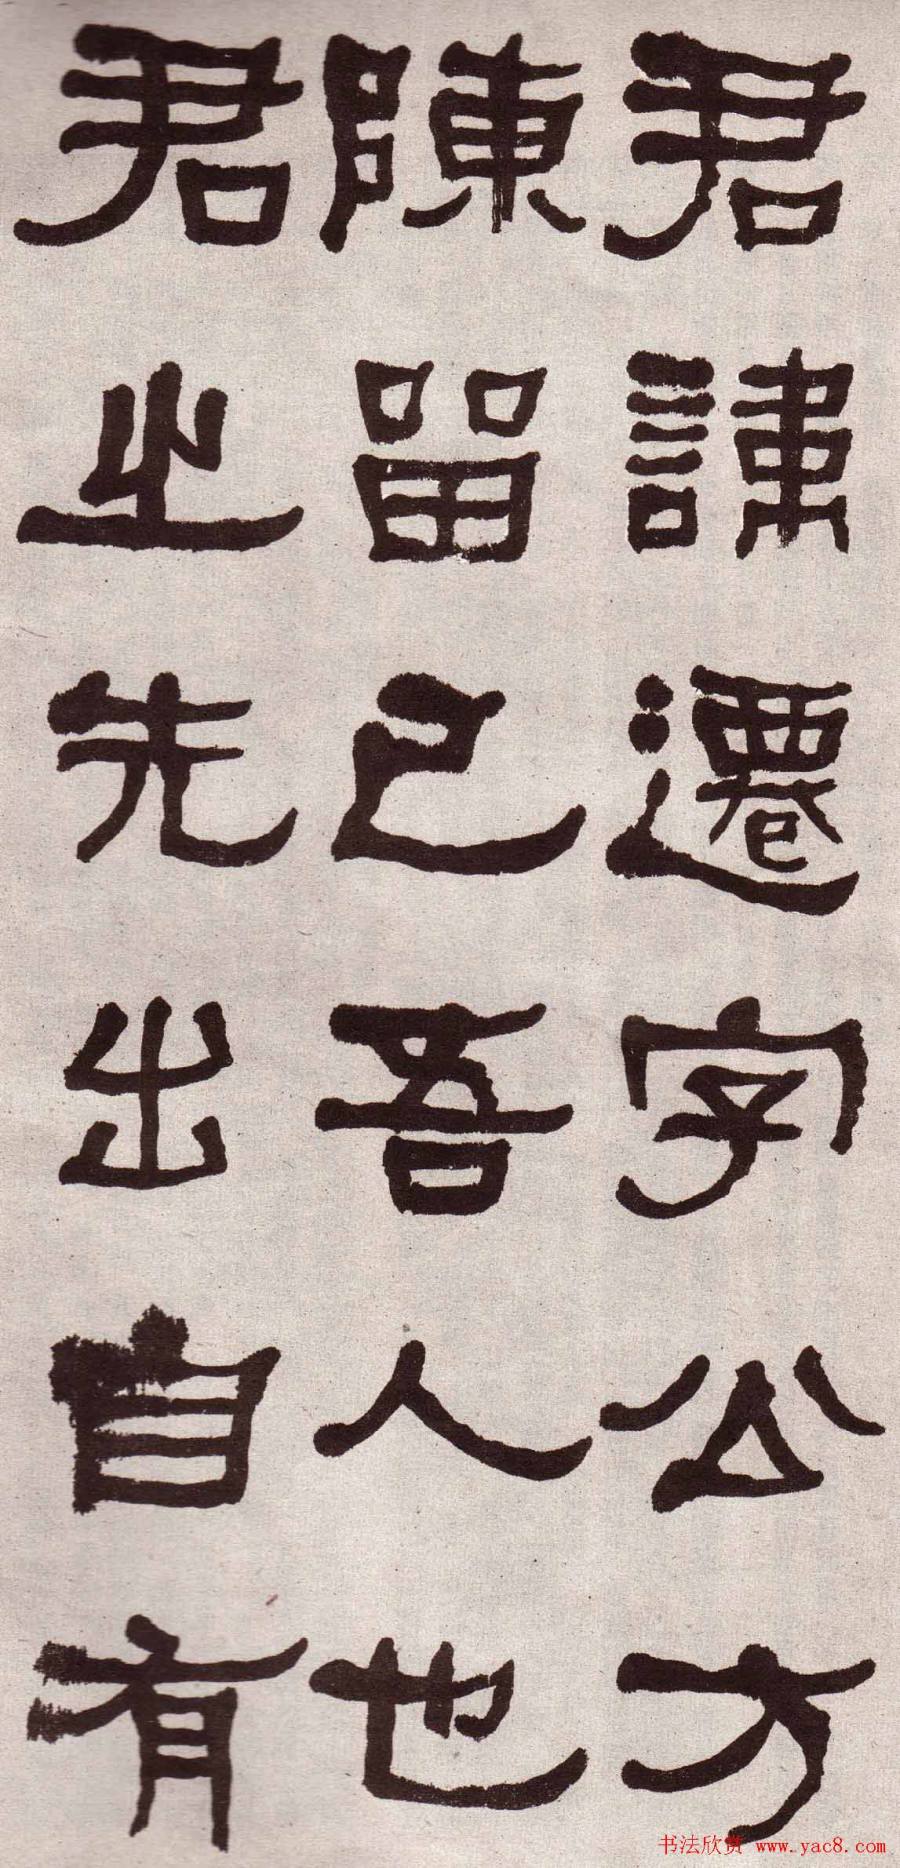 君諱遷字公方
陳留己吾人也
君之先出自有
书法欣赏 www.yac8.com